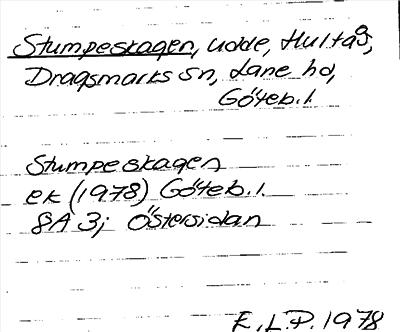 Stumpeskagen, udde, Hultås,
Dragsmarks sn, Lane hd,
Göteb.l.
Stumpeskagen
ek (1978) Göteb.l.
8A 3; Östersidan
E.L.P. 1978